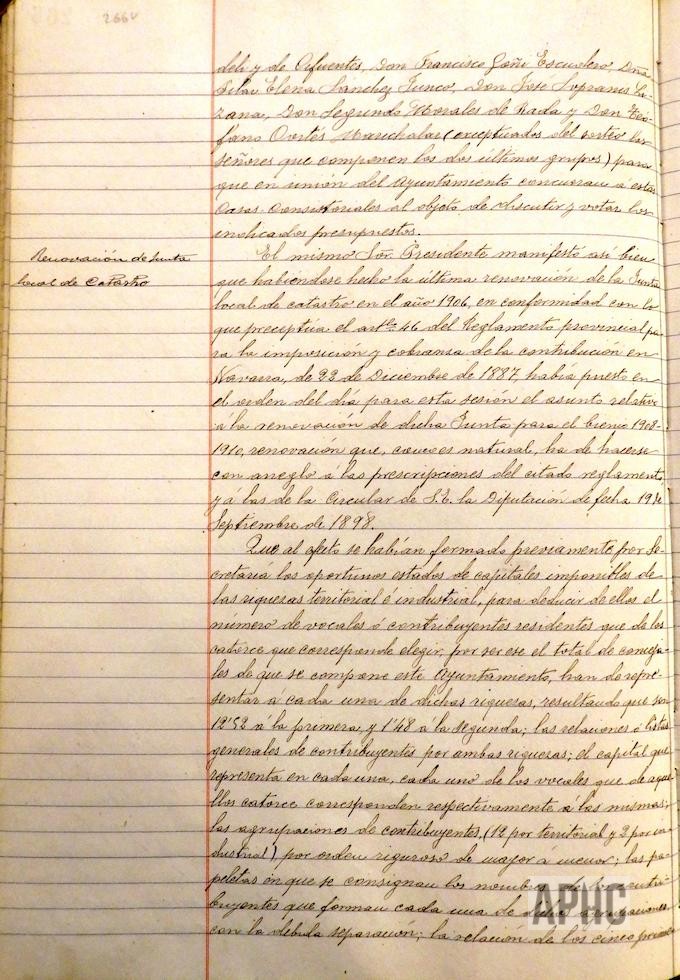 266v
deli y de Cifuentes, Don Francisco Goñi Escudero, Dña
Pilar Elena Sánchez Junco, Don José Sopranis La-
zana, Don Segundo Morales de Rada y Don Teo-
fano Cortés Marichalar (exceptuados del sorteo los
señores que componen los dos últimos grupos) para
que en unión del Ayuntamiento concurran a estas
Casas Consistoriales al objeto de discutir y votar los
indicados presupuestos.
Renovación de Junta
local de Catastro
El mismo Sor. Presidente manifestó asi bien
que habiéndose hecho la última renovación de la Junta
local de catastro en el año 1906, en conformidad con lo
que preceptúa el artº 46 del Reglamento provincial pa-
ra la imposición y cobranza de la contribución en
Navarra, de 22 de Diciembre de 1887, había puesto en
el orden del día para esta sesión el asunto relativo
á la renovación de dicha Junta para el bienio 1908-
1910, renovación que, como es natural, ha de hacerse
con arreglo á las prescripciones del citado reglamento
y á las de la Circular de S.E. la Diputación de fecha 19 de
Septiembre de 1898.
Que al efecto se habían formado previamente por Se-
cretaría los oportunos estados de capitales imponibles de
las riquezas territorial é industrial, para deducir de ellos el
número de vocales ó contribuyentes residentes que de los
catorce que corresponde elegir, por ser ese el total de conceja-
les de que se compone este Ayuntamiento, han de repre-
sentar á cada una de dichas riquezas, resultando que son
12'52 á la primera, y 1'48 á la segunda; las relaciones ó listas
generales de contribuyentes por ambas riquezas; el capital que
representa en cada una, cada uno de los vocales que de aque-
llos catorce corresponden respectivamente á las mismas;
las agrupaciones de contribuyentes, (12 por territorial y 2 por in-
dustrial) por orden riguroso de mayor á menor; las pa-
peletas en que se consignan los nombres de los contri-
buyentes que forman cada una de dichas agrupaciones
con la debida separación; la relación de los cinco primeros
APHC